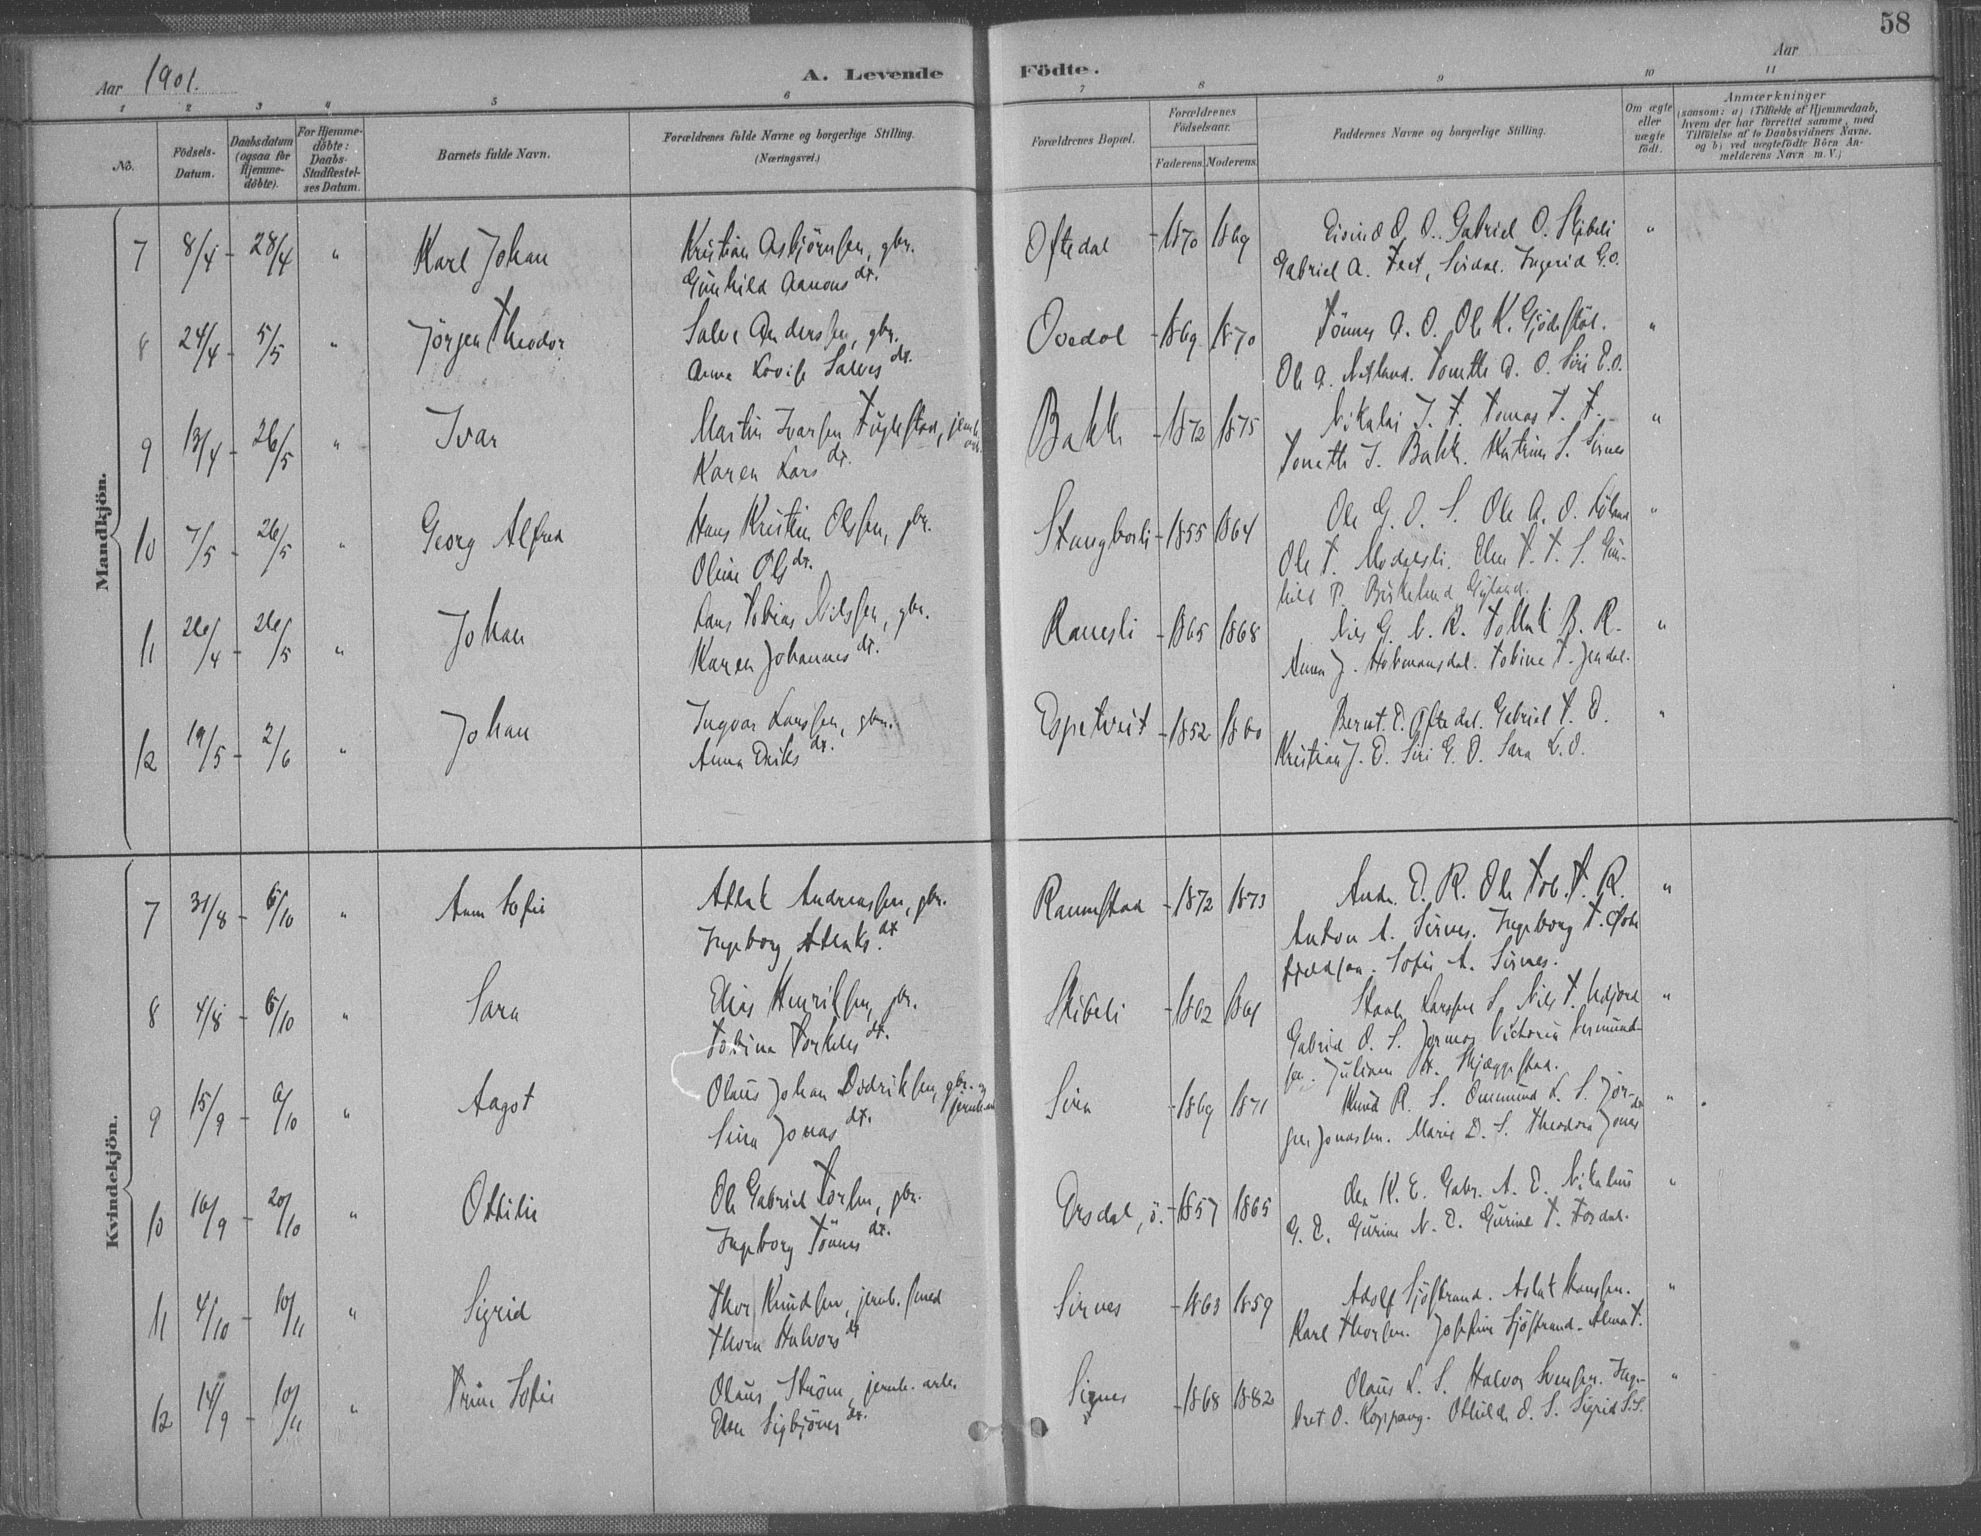 58
Aar 1901.
A. Levende Födte.
Aar
1 2 3 4 5 6 7 8 9 10 11
Nö.
Födsels-Datum.
Daabsdatum (ogsaa for Hjemme-döbte).
For Hjemme-döbte: Daabs-Stadfæstel-ses Datum.
Barnets fulde Navn.
Forældrenes fulde Navne og borgerlige Stilling.
(Næringsvei.)
Forældrenes Bopæl.
Forældrenes Födselsaar.
Faderens. Moderens.
Faddernes Navne og borgerlige Stilling.
Om ægte eller uægte födt.
Anmærkninger
(saasom: a) i Tilfælde af Hjemmedaab, hvem der har forrettet samme, med Tilföielse af to Daabsvidners Navne. og b) ved uægtefödte Börn An-melderens Navn m. V.)
Mandkjön.
7 8/4 - 28/4 " Karl Johan Kristian Asbjörnsen, gbr. Oftedal - 1870 1869 Eivind O. O. Gabriel O. Skibeli "
Gunhild Aanons dr. Gabriel A. Feet, Sirdal. Ingerid G. O.
8 24/4 - 5/5 " Jörgen Theodor Salve Anderssen, gbr. Ovedal - 1869 1870 Tönnes A. O. Ole K. Gjödestöl. "
Anna Lovise Salves dr. Ole A. Netland. Tomette A. O. Siri E. O.
9 13/4 - 26/5 " Ivar Martin Ivarsen Fuglestad, jernb. arb. Bakke - 1872 1875 Nikolai I. F. Tomas T. F. "
Karen Lars dr. Tonette J. Bakke. Katrine S. Sirnes
10 7/5 - 26/5 " Georg Alfred Hans Kristian Olsen, gbr. Stangborli - 1855 1864 Ole G. O. S. Ole A. O. "
Oline Ols dr. Ole T. Modalsli. Elen T. T. S. Gun-
hild P. Birkeland Gyland.
11 26/4 - 26/5 " Johan Hans Tobias Nilssen, gbr. Ramsli - 1865 1868 Nils G. N. R. Tollak B. R. "
Karen Johannes dr. Anna J. Tobine T. Josdal.
12 19/5 - 2/6 " Johan Ingvar Larssen, gbr. Espetveit - 1852 1860 Bernt E. Oftedal. Gabriel T. O. "
Anna Eriks dr. Kristian J. O. Siri G. O. Sara L. O.
Kvindekjön.
7 31/8 - 6/10 " Anna Sofie Atlak Andreassen, gbr. Raumstad - 1872 1873 Andr. E. R. Ole Tob. T. R. "
Ingeborg Atlaks dr. Anton A. Sirnes. Ingeborg T.
Sofie A. Sirnes.
8 4/8 - 6/10 " Sara Elias Henriksen, gbr. Skibeli - 1862 1861 Larssen S. Nils T. "
Tobine Torkels dr. Gabriel O. S. Victoria
Juliane Skjæggestad.
9 15/9 - 6/10 " Aagot Olaus Johan Didriksen, gbr. og Sira - 1869 1871 Knud R. S. Ommund L. S. Jör- "
Sina Jonas dr. gen Jonassen. Marie D. S. Theodora Jonas dr.
10 16/9 - 20/10 " Ottilie Ole Gabriel Torsen, gbr. Ersdal, ö. - 1857 1865 Ole K. E. Gabr. A. E. Nikolai "
Ingeborg Tönnes dr. G. E. Gurine N. E. Gurine T. Josdal.
11 4/10 - 10/11 " Sigrid Thor Knudsen, jernb. smed Sirnes - 1863 1859 Adolf Sjöstrand. Aslak Hansen. "
Thora Halvors dr. Karl Thorsen. Josefine Sjöstrand. Alma T.
12 14/9 - 10/11 " Trine Sofie Olaus Ström, jernb. arb. Sirnes - 1868 1882 Olaus L. S. Halvor Svensen. Inge- "
Elen Sigbjörns dr. bret O. Koppang. Othilde O. S. Sigrid S. S.